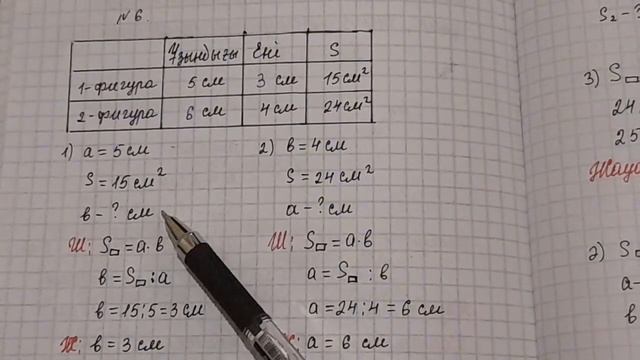 №6.
Ұзындығы Ені S
1-фигура 5 см 3 см 15 см²
2-фигура 6 см 4 см 24 см²
1) a = 5 см
S = 15 см²
в - ? см
Ш: S▭ = a · в
в = S▭ : a
в = 15 : 5 = 3 см
Ж: в = 3 см
2) в = 4 см
S = 24 см²
a - ? см
Ш: S▭ = a · в
a = S▭ : в
a = 24 : 4 = 6 см
a = 6 см
S₂ - ?
3) S▭
24
25
2) S▭
a -
в